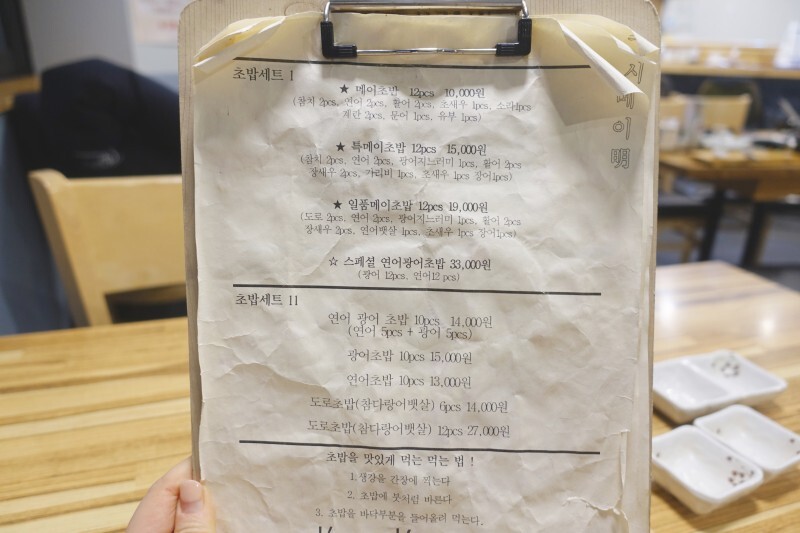 초밥세트 I
★ 메이초밥 12pcs 10,000원
(참치 2pcs, 연어 2pcs, 활어 2pcs, 초새우 1pcs, 소라1pcs
계란 2pcs, 문어 1pcs, 유부 1pcs)
★ 특메이초밥 12pcs 15,000원
(참치 2pcs, 연어 2pcs, 광어지느러미 1pcs, 활어 2pcs
장새우 2pcs, 가리비 1pcs, 초새우 1pcs 장어1pcs)
★ 일품메이초밥 12pcs 19,000원
(도로 2pcs, 연어 2pcs, 광어지느러미 1pcs, 활어 2pcs
장새우 2pcs, 연어뱃살 1pcs, 초새우 1pcs 장어1pcs)
☆ 스페셜 연어광어초밥 33,000원
(광어 12pcs, 연어12 pcs)
초밥세트 II
연어 광어 초밥 10pcs 14,000원
(연어 5pcs + 광어 5pcs)
광어초밥 10pcs 15,000원
연어초밥 10pcs 13,000원
도로초밥(참다랑어뱃살) 6pcs 14,000원
도로초밥(참다랑어뱃살) 12pcs 27,000원
초밥을 맛있게 먹는 먹는 법 !
1. 생강을 간장에 찍는다
2. 초밥에 붓처럼 바른다
3. 초밥을 바닥부분을 들어올려 먹는다.
메이明